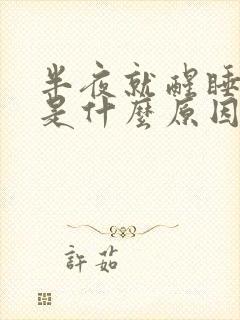 半夜就醒睡
是什麼原因
許茹